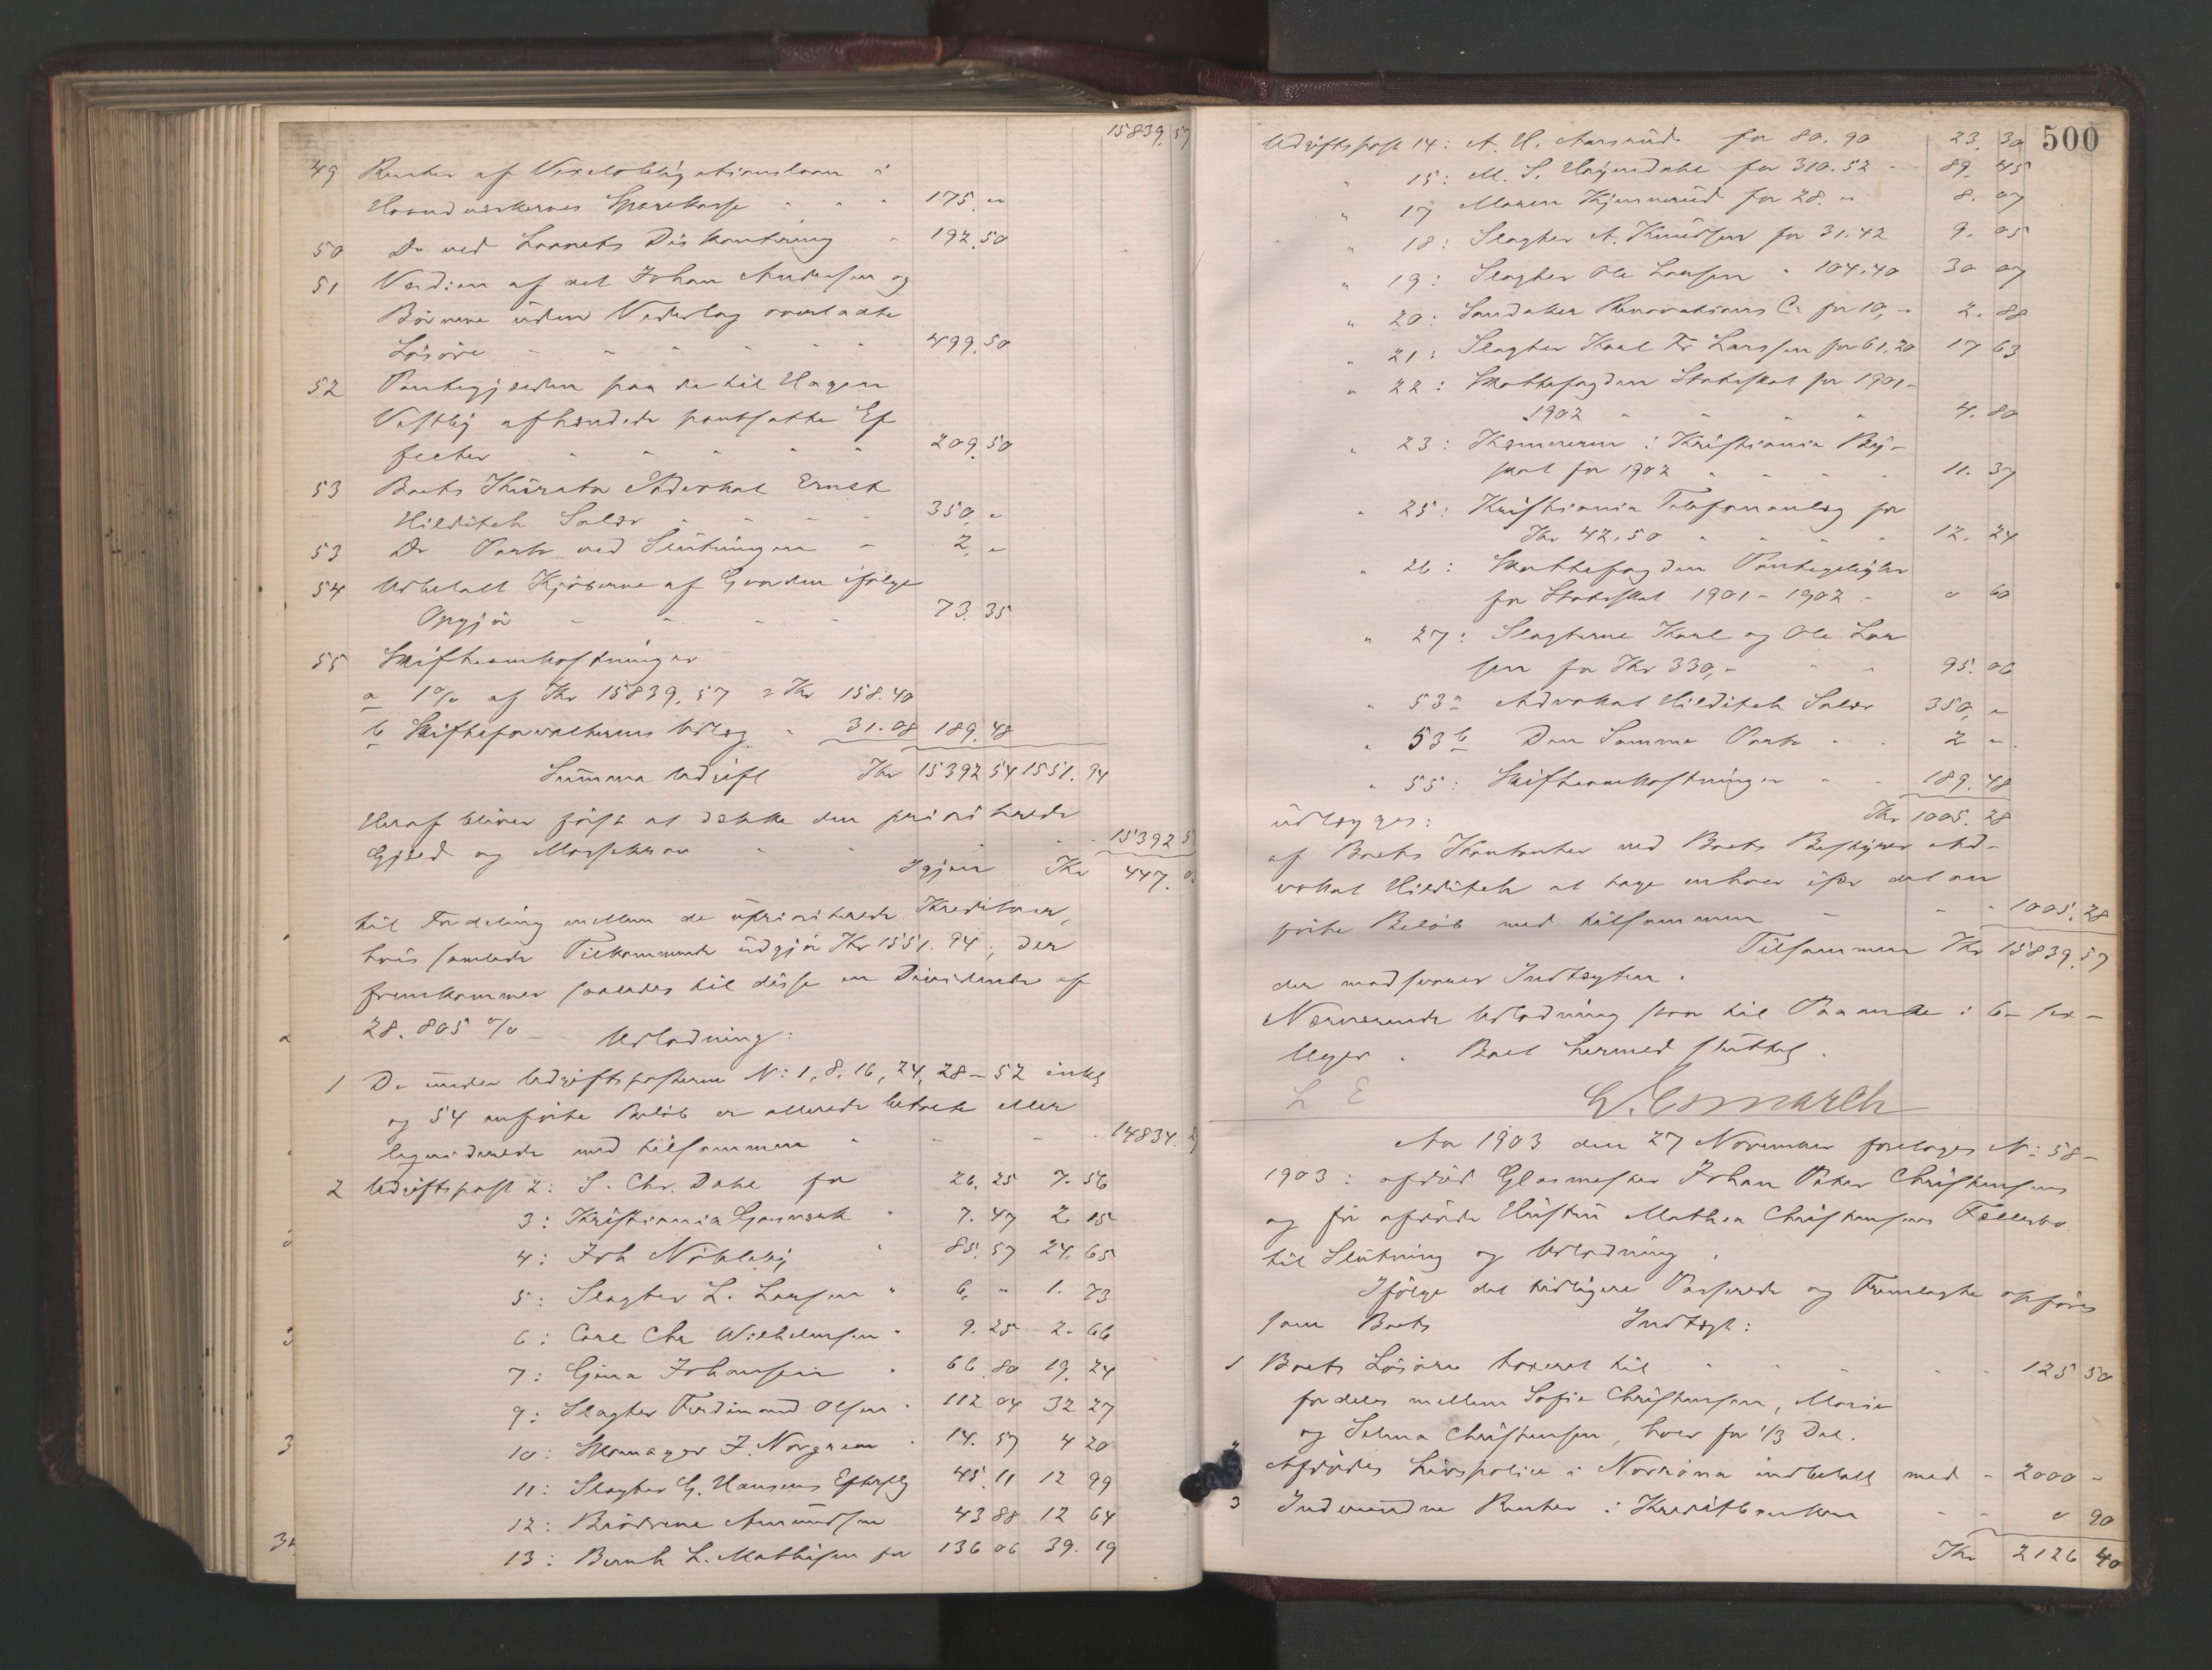 15839.57
49 Renter af Vexelobligationslaan i
Haandværkernes Sparekasse " " " 175. "
50 Do ved Laanets Diskontering " 192.50
51 Værdien af det Johan Andersen og
Börnene uden Vederlag overladte
Lösöre - - - - - 499.50
52 Pantegjælden paa de til Hagen
Vestby afhændede pantsatte Ef
fecter " " " " " 209.50
53 Boets Kurator Advokat Ernst
Hilditch Salær - - - - 350. "
53 Do Porto ved Slutningen - 2. "
54 Udbetalt Kjöberne af Gaarden ifölge
Opgjör - - - - 73.35
55 Skifteomkostninger
a 1% af Kr 15839.57 = Kr 158.40
b Skifteforvalterens Udlæg " 31.08 189.48
Summa Udgift Kr 15392 54 1551.94
Heraf bliver först at dække den prioriterede
Gjæld og Massekrav " " " 15392 5
Igjen Kr 447. 0
til Fordeling mellem de uprioriterede Kreditorer,
hvis samlede Tilkommende udgjör Kr 1551.94; der
fremkommer saaledes til disse en Dividende af
28.805 %
Udlodning:
1 De under Udgiftsposterne N: 1, 8, 16, 24, 28-52 inkl
og 54 anförte Belöb er allerede betalte eller
ligviderede med tilsammen " - - - 14834. 2
2 Udgiftspost 2: S. Chr. Dahl for 26.25 7.56
3: Kristiania Gasværk " 7.47 2 15
4: Joh Nökleby " 85.57 24.65
5: Slagter L. Larsen " 6. " 1.73
6: Carl Chr Wilhelmsen " 9.25 2.66
7: Gina Johansen " 66.80 19.24
9: Slagter Ferdinand Olsen " 112 04 32 27
10: Skomager J. Norgren " 14.57 4 20
11: Slagter G. Hansens Efterflg 45.11 12 99
12: Brödrene Amundsen 43 88 12 64
13: Bernh L. Mathisen for 136 06 39.19
500
Udgiftspost 14: A. H. Aarsrud for 80.90 23.30
" 15: M. S. Høyendahl for 310.52 - - 89.45
" 17 Maren Kjennerud for 28. " 8.07
" 18: Slagter A. Knudsen for 31.42 9.05
" 19: Slagter Ole Larsen " 104.40 30 07
" 20: Sandaker Renovations C. for 10, - 2.88
" 21: Slagter Karl Fr Larssen for 61.20 17 63
" 22: Skattefogden Statsskat for 1901-
1902 " " " " 4.80
" 23: Kæmneren i Kristiania By-
skat for 1902 " " " 11.37
" 25: Kristiania Telefonanlæg for
Kr 42.50 " " " " 12.24
" 26: Skattefogden Pantegebyr
for Statsskat 1901-1902 - " 60
" 27: Slagterne Karl og Ole Lar
sen for Kr 330,- " " 95.06
" 53a Advokat Hilditch Salær 350, "
" 53b Den Samme Porto " " 2 "
" 55: Skifteomkostninger " - 189.48
udlægges: Kr 1005.28
af Boets Kontanter ved Boets Bestyrer Ad-
vokat Hilditch at tage enhver især det an
förte Belöb med tilsammen - - " 1005.28
Tilsammen Kr 15839.57
der modsvarer Indtægten.
Nærværende Udlodning staar til Paaanke i 6 - sex -
Uger. Boet hermed sluttet.
L E
L. Esmarch
Aar 1903 den 27 November foretoges N: 58-
1903: afdöd Glasmester Johan Peter Christensens
og för afdöde Hustru Mathea Christensens Fællesbo
til Slutning og Udlodning.
Ifölge det tidligere Passerede og Fremlagte opföres
som Boets Indtægt:
1 Boets Lösöre taxeret til " - - - - 125 50
fordeles mellem Sofie Christensen, Marie
og Selma Christensen, hver for 1/3 Del.
2 Afdödes Livspolice i Norröna indbetalt med - 2000 -
3 Indvundne Renter i Kreditbanken - - " 90
Kr 2126 40